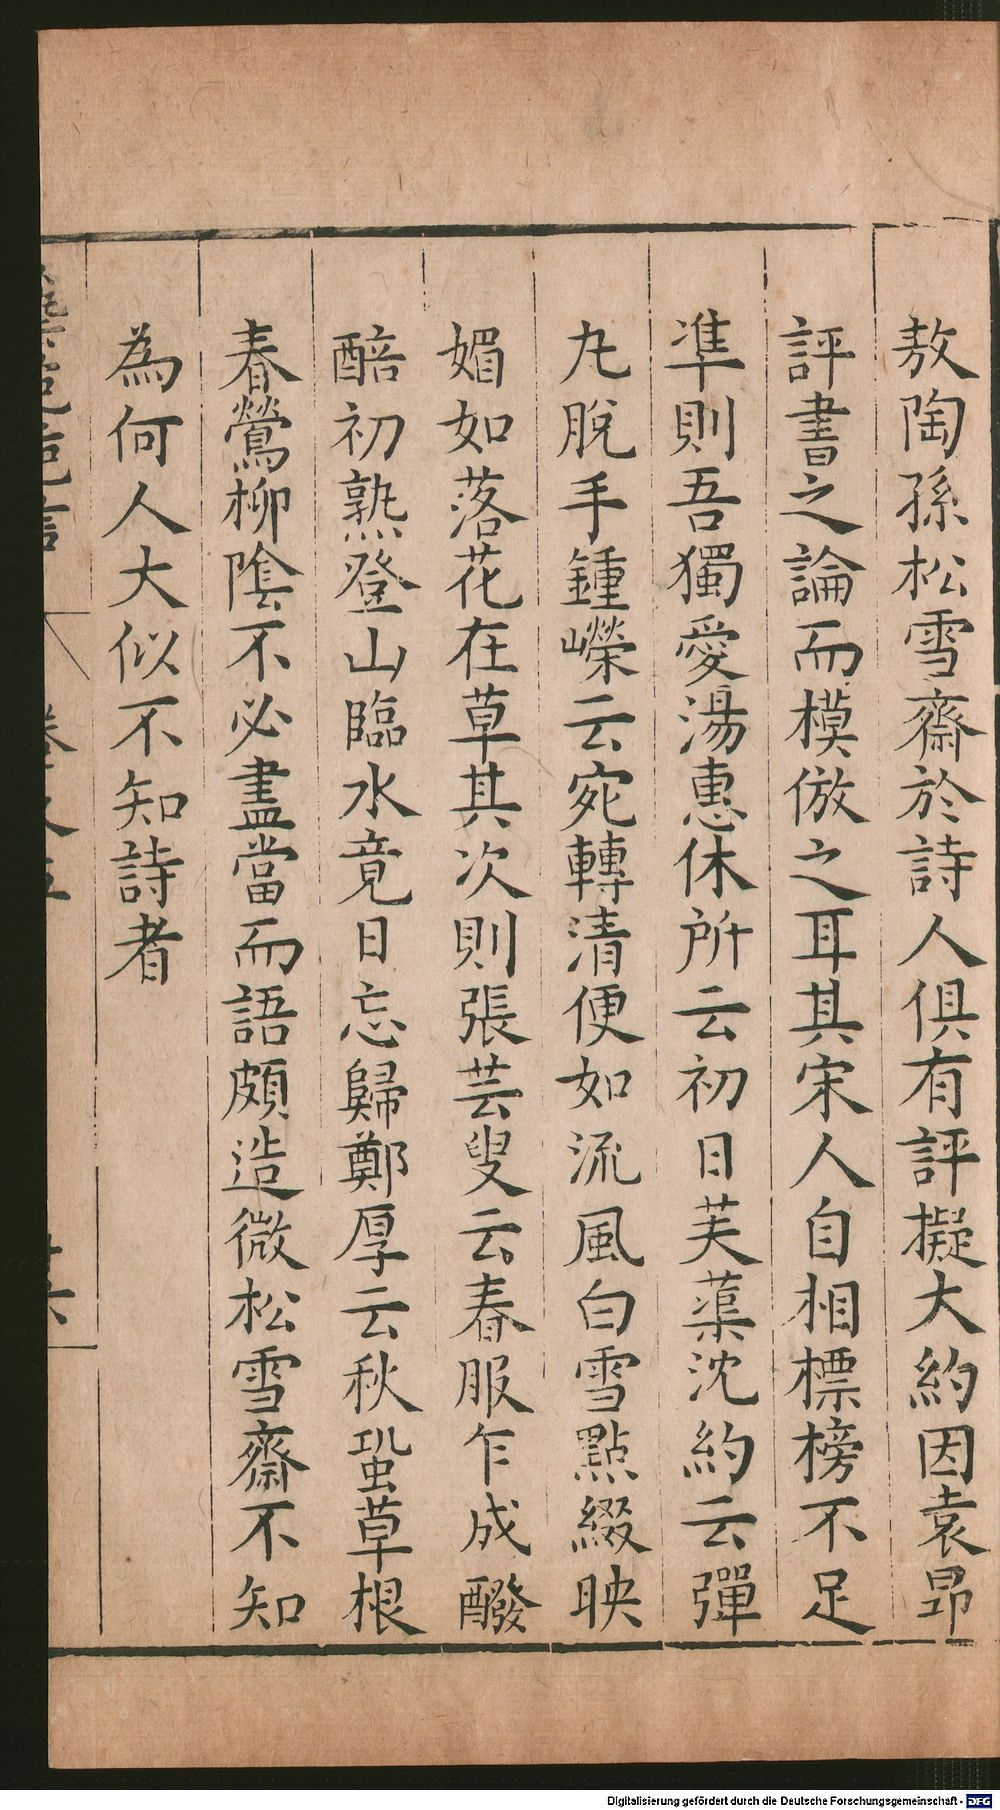 敖陶孫松雪齋於詩人俱有評擬大約因袁昂
評書之論而模倣之耳其宋人自相標榜不足
準則吾獨愛湯惠休所云初日芙蕖沈約云彈
九脫手鍾嶸云宛轉清便如流風白雪點綴映
媚如落花在草其次則張芸叟云春服乍成醱
醅初熟登山臨水竟日忘歸鄭厚云秋蛩草根
春鶯柳陰不必盡當而語頗造微松雪齋不知
為何人大似不知詩者
Digitalisierung gefördert durch die Deutsche Forschungsgemeinschaft - DFG